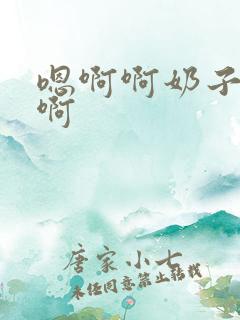 嗯啊啊奶子
啊
唐家小七
未经同意禁止转载